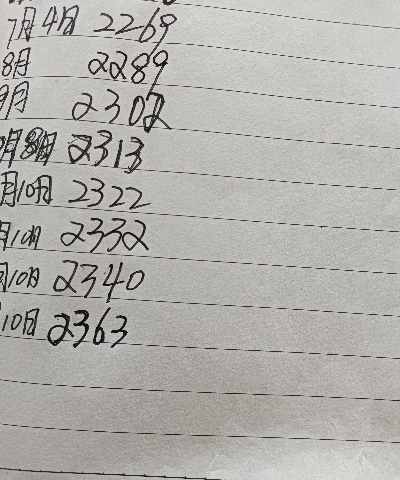 7月4日 2269
8月 2289
9月 2302
月8日 2313
月10日 2322
月10日 2332
月10日 2340
10日 2363